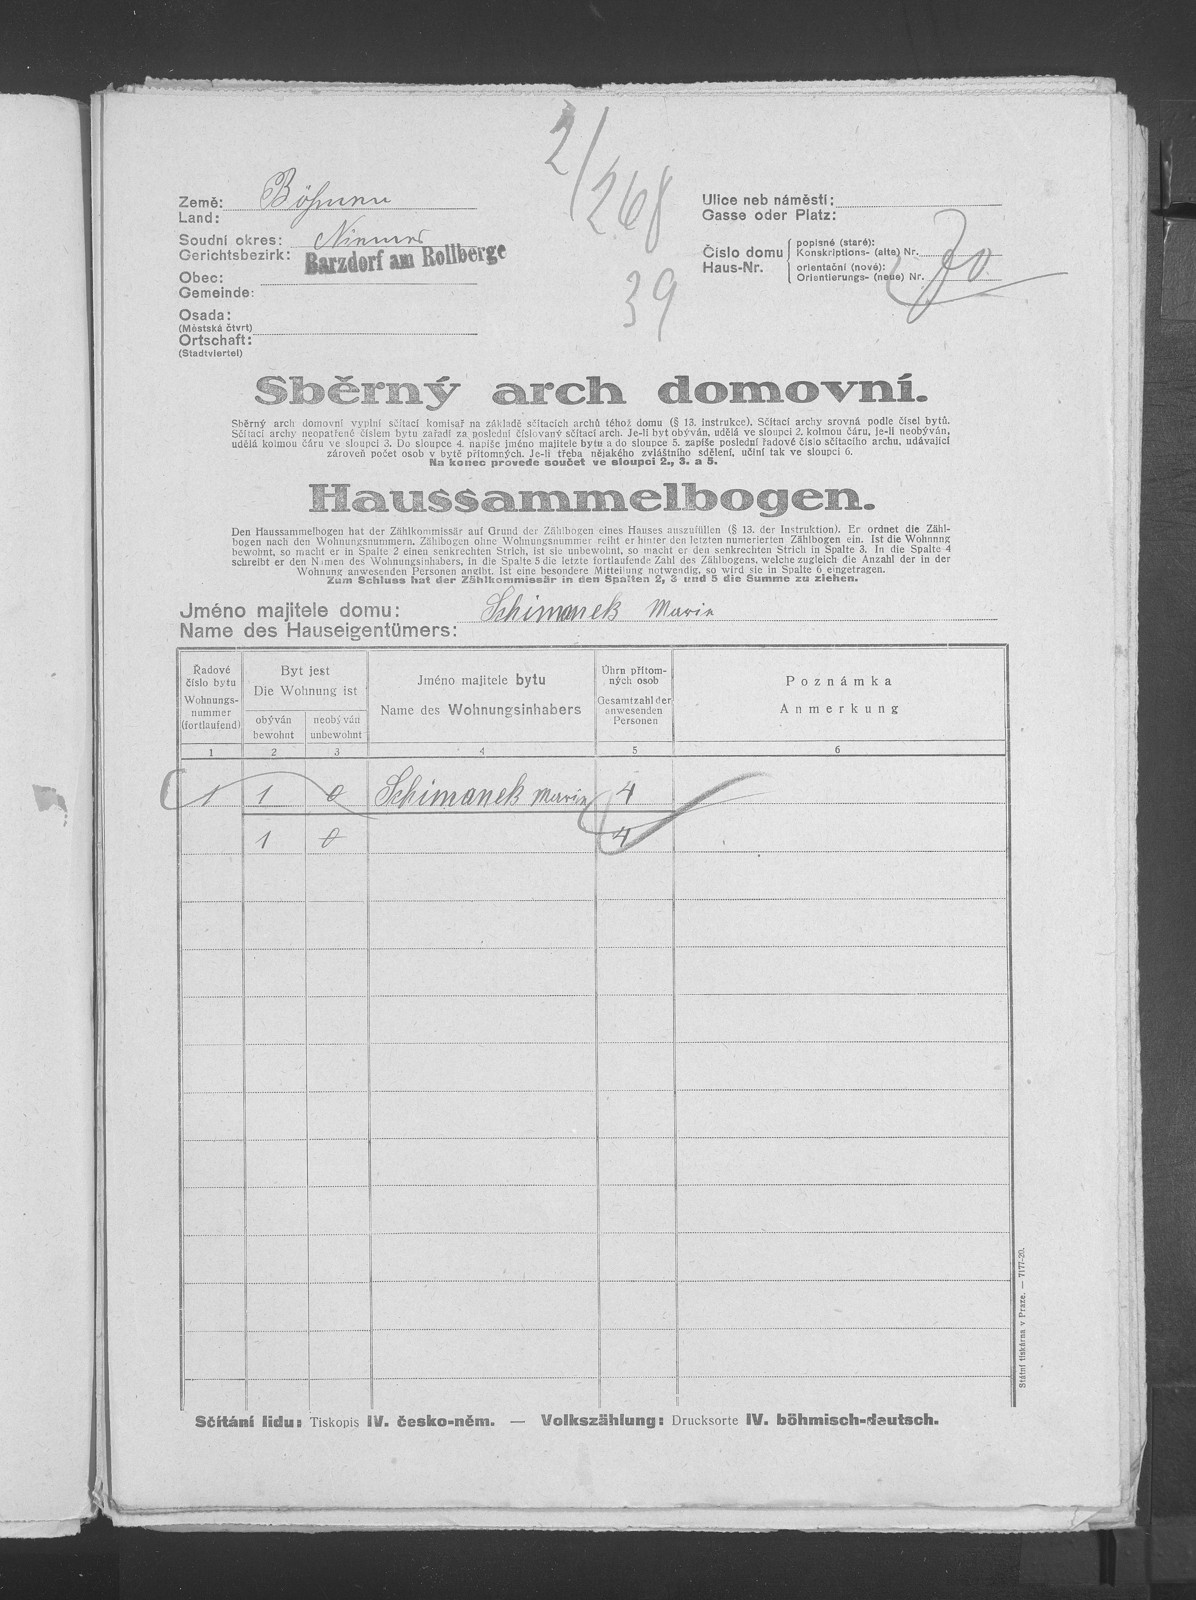 2/268
39
Země: Böhmen
Land:
Soudní okres: Niemes
Gerichtsbezirk:
Barzdorf am Rollberge
Obec:
Gemeinde:
Osada:
(Městská čtvrt)
Ortschaft:
(Stadtviertel)
Ulice neb náměstí:
Gasse oder Platz:
Číslo domu
Haus-Nr.
popisné (staré):
Konskriptions- (alte) Nr.
orientační (nové):
Orientierungs- (neue) Nr.
70
Sběrný arch domovní.
Sběrný arch domovní vyplní sčítací komisař na základě sčítacích archů téhož domu (§ 13. instrukce). Sčítací archy srovná podle čísel bytů.
Sčítací archy neopatřené číslem bytu zařadí za poslední číslovaný sčítací arch. Je-li byt obýván, udělá ve sloupci 2. kolmou čáru, je-li neobýván,
udělá kolmou čáru ve sloupci 3. Do sloupce 4. napíše jméno majitele bytu a do sloupce 5. zapíše poslední řadové číslo sčítacího archu, udávající
zároveň počet osob v bytě přítomných. Je-li třeba nějakého zvláštního sdělení, učiní tak ve sloupci 6.
Na konec provede součet ve sloupci 2., 3. a 5.
Haussammelbogen.
Den Haussammelbogen hat der Zählkommissär auf Grund der Zählbogen eines Hauses auszufüllen (§ 13. der Instruktion). Er ordnet die Zähl-
bogen nach den Wohnungsnummern. Zählbogen ohne Wohnungsnummer reiht er hinter den letzten numerierten Zählbogen ein. Ist die Wohnnng
bewohnt, so macht er in Spalte 2 einen senkrechten Strich, ist sie unbewohnt, so macht er den senkrechten Strich in Spalte 3. In die Spalte 4
schreibt er den Namen des Wohnungsinhabers, in die Spalte 5 die letzte fortlaufende Zahl des Zählbogens, welche zugleich die Anzahl der in der
Wohnung anwesenden Personen angibt. Ist eine besondere Mitteilung notwendig, so wird sie in Spalte 6 eingetragen.
Zum Schluss hat der Zählkommissär in den Spalten 2, 3 und 5 die Summe zu ziehen.
Jméno majitele domu: Schimanek Marie
Name des Hauseigentümers:
Řadové
číslo bytu
Wohnungs-
nummer
(fortlaufend)
Byt jest
Die Wohnung ist
obýván
bewohnt
neobýván
unbewohnt
Jméno majitele bytu
Name des Wohnungsinhabers
Úhrn přítom-
ných osob
Gesamtzahl der
anwesenden
Personen
Poznámka
Anmerkung
1 2 3 4 5 6
1 1 0 Schimanek Marie 4
1 0 4
Státní tiskárna v Praze. — 7177-20.
Sčítání lidu: Tiskopis IV. česko-něm. — Volkszählung: Drucksorte IV. böhmisch-deutsch.